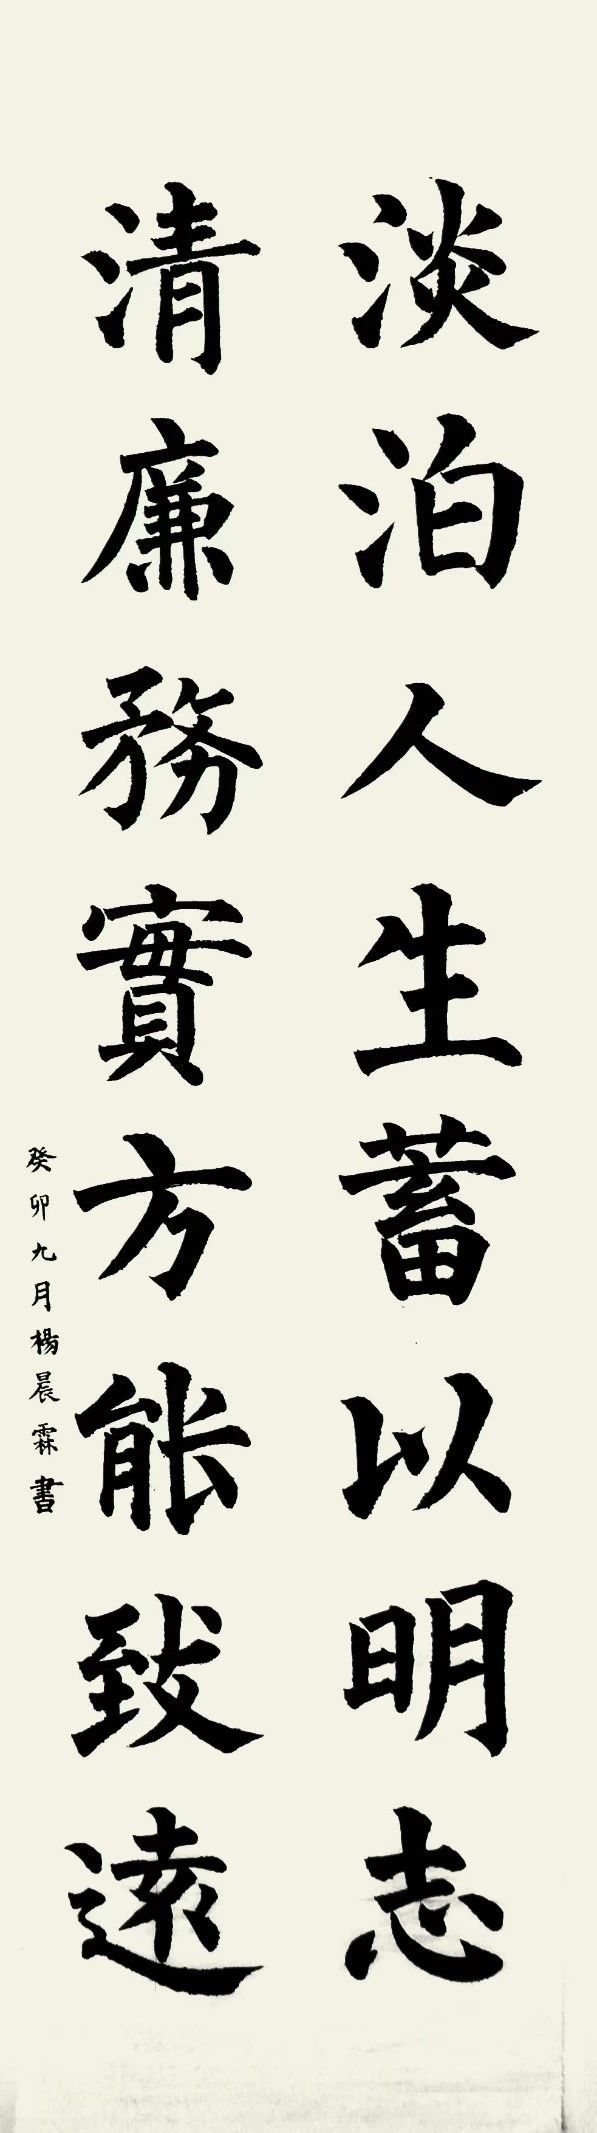 淡泊人生蓄以明志
清廉務實方能致遠
癸卯九月楊晨霖書